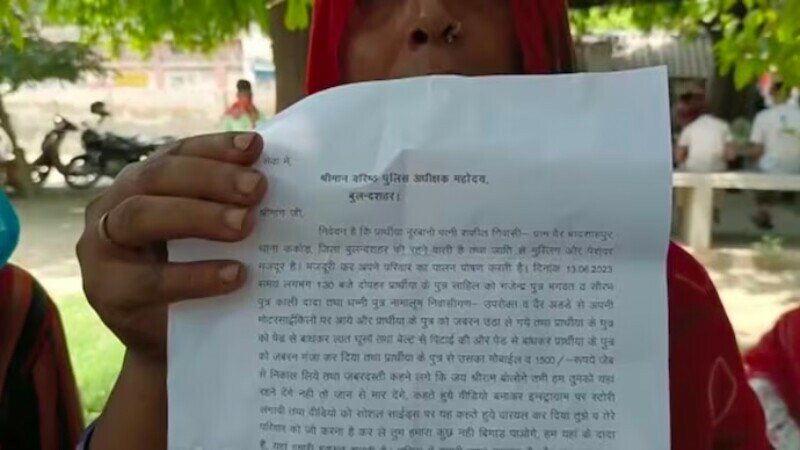 सेवा में,
श्रीमान वरिष्ठ पुलिस अधीक्षक महोदय,
बुलन्दशहर।
श्रीमान जी,
निवेदन है कि प्रार्थीया नूरबानो पत्नी शकील निवासी– ग्राम वैर बादशाहपुर
थाना ककोड, जिला बुलन्दशहर की रहने वाली है तथा जाति से मुस्लिम और पेशेवर
मजदूर है। मजदूरी कर अपने परिवार का पालन पोषण करती है। दिनांक 13.06.2023
समय लगभग 1:30 बजे दोपहर प्रार्थीया के पुत्र साहिल को गजेन्द्र पुत्र भगवत व सौरभ
पुत्र काली दादा तथा धन्नी पुत्र नामालूम निवासीगण– उपरोक्त व वैर अडडे से अपनी
मोटरसाईकिलों पर आये और प्रार्थीया के पुत्र को जबरन उठा ले गये तथा प्रार्थीया के पुत्र
को पेड से बाधकर लात घूसों तथा बेल्ट से पिटाई की और पेड से बाधकर प्रार्थीया के पुत्र
को जबरन गंजा कर दिया तथा प्रार्थीया के पुत्र से उसका मोबाईल व 1500/–रूपये जेब
से निकाल लिये तथा जबरदस्ती कहने लगे कि जय श्रीराम बोलोगे तभी हम तुमको यहां
रहने देंगे नही तो जान से मार देंगे, कहते हुये वीडियो बनाकर इन्स्टाग्राम पर स्टोरी
लगायी तथा वीडियो को सोशल साईड्स पर यह कहते हुये वायरल कर दिया तुझे व तेरे
परिवार को जो करना है कर ले तुम हमारा कुछ नही बिगाड पाओगे, हम यहां के दादा
है, यहा हमारी